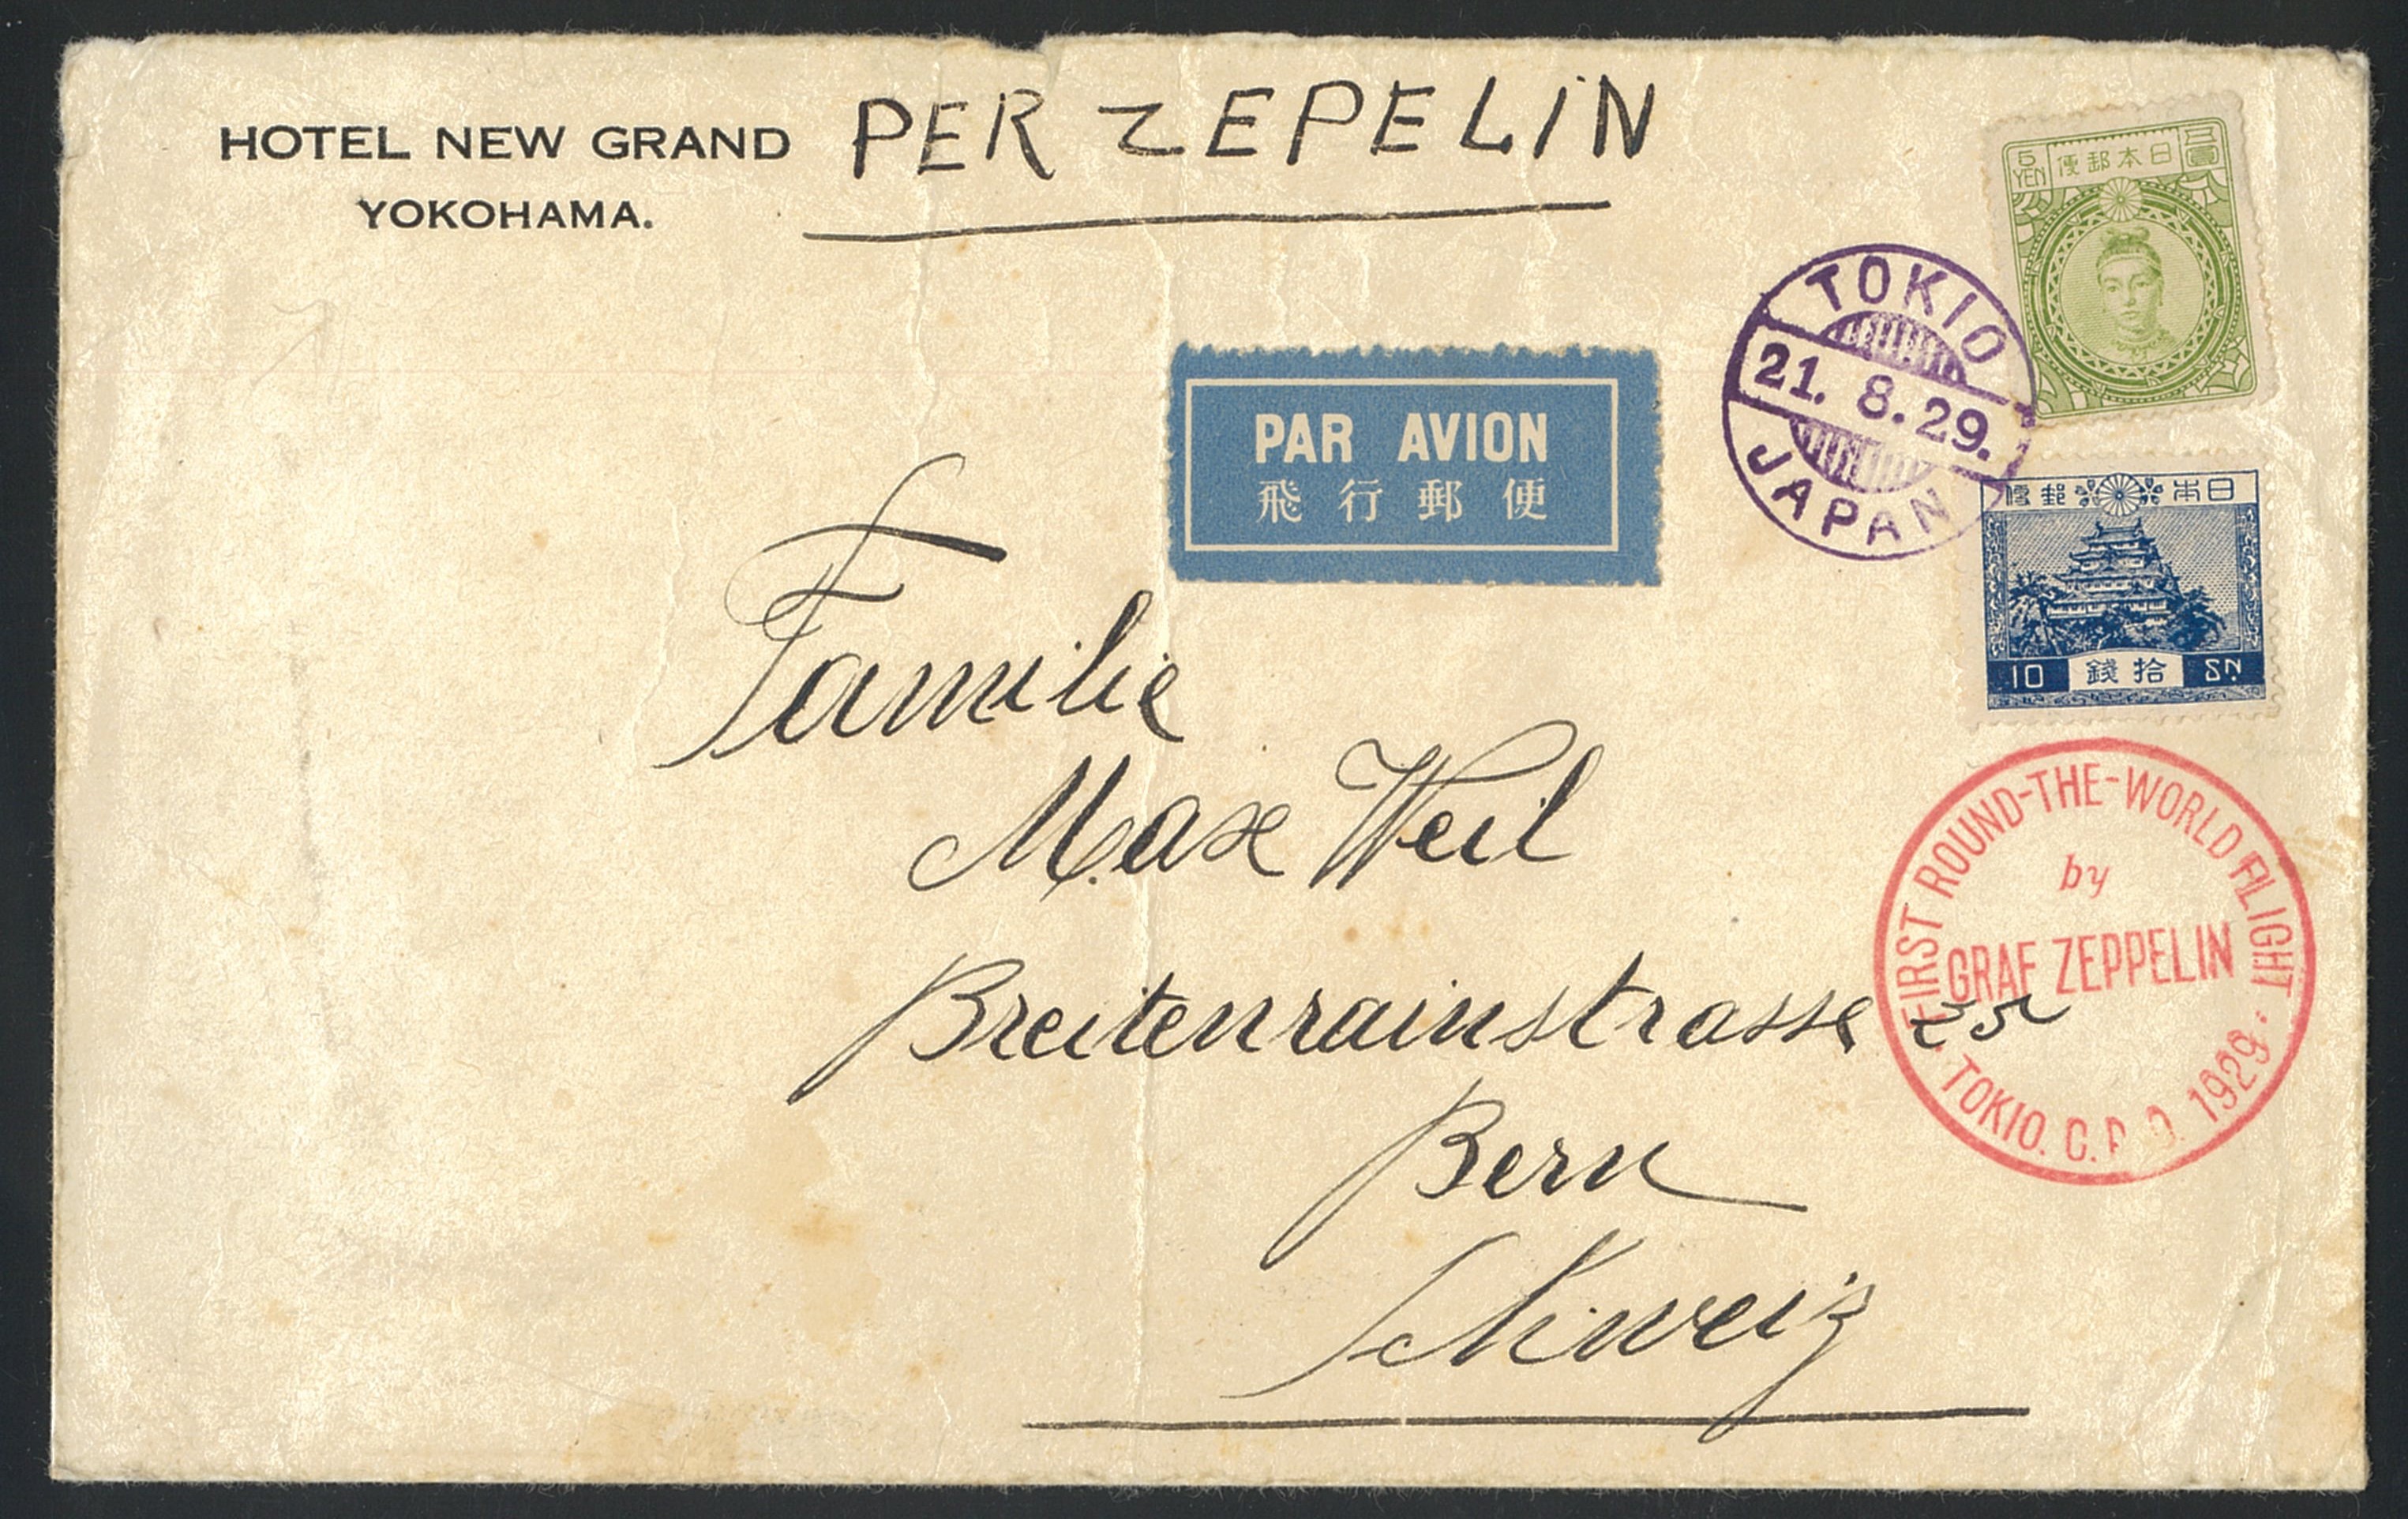 HOTEL NEW GRAND
YOKOHAMA.
PER ZEPELIN
5 YEN
日本郵便
五圓
TOKIO
21. 8. 29.
JAPAN
PAR AVION
飛行郵便
日本郵便
10 拾錢 SN
Familie
Max Weil
Breitenrainstrasse 25
Bern
Schweiz
FIRST ROUND-THE-WORLD FLIGHT
by
GRAF ZEPPELIN
TOKIO. C.P.O. 1929.